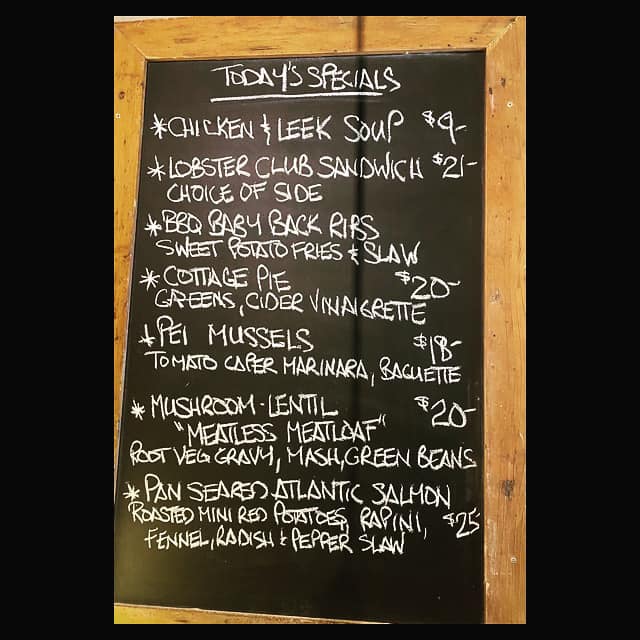 TODAY'S SPECIALS
* CHICKEN & LEEK SOUP $9-
* LOBSTER CLUB SANDWICH $21-
CHOICE OF SIDE
* BBQ BABY BACK RIBS
SWEET POTATO FRIES & SLAW
* COTTAGE PIE $20-
GREENS, CIDER VINAIGRETTE
* PEI MUSSELS $18-
TOMATO CAPER MARINARA, BAGUETTE
* MUSHROOM-LENTIL $20-
"MEATLESS MEATLOAF"
ROOT VEG GRAVY, MASH, GREEN BEANS
* PAN SEARED ATLANTIC SALMON
ROASTED MINI RED POTATOES, RAPINI, $25
FENNEL, RADISH & PEPPER SLAW